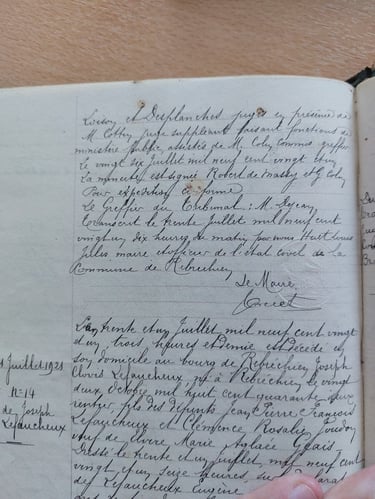 Loison et Desplanches juges en présence de
M. Cottin juge suppléant faisant fonctions de
ministère public, assistés de M. Coly commis greffier
le vingt six Juillet mil neuf cent vingt et un
La minute est signée Robert de Massy et G. Coly
Pour expédition conforme
Le Greffier du Tribunal : M.
Transcrit le trente Juillet mil neuf cent
vingt un dix heures du matin par nous Huet Louis
Jules maire officier de l'état civil de la
Commune de Rebréchien
Le Maire
Huet
L'an trente et un Juillet mil neuf cent vingt
et un, trois heures et demie est décédé en
son domicile au bourg de Rebréchien, Joseph
Clovis Lejaucheux né à Rebréchien le vingt
deux Octobre mil huit cent quarante deux
rentier, fils des défunts Jean Pierre François
Lejaucheux et Clémence Rosalie Joudon
veuf de Marie Aglaée
Dressé le trente et un Juillet, mil neuf cent
vingt et un seize heures, sur
de Lejaucheux Eugène
Juillet 1921
N° 14
de Joseph
Lejaucheux